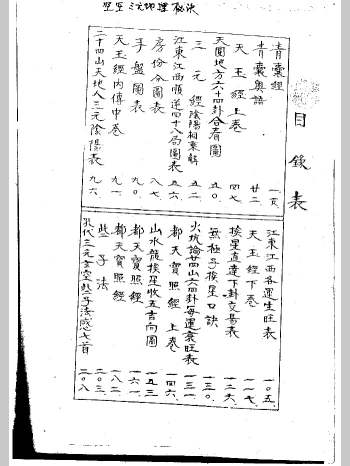 玄空三元地理秘決
目錄表
青囊經 一頁
青囊奧語 廿二
天玉經上卷 四七
天圓地方六十四卦合看圖 五〇
三元經陰陽相乘解 五二
江東江西順逆四十八局圖表 五六
房份分圖表 八七
手盤圖表 九〇
天玉經內傳中卷 九一
二十四山天地人三元陰陽表 九六
江東江西各運生旺表 一〇五
天玉經下卷 一一七
挨星直達下卦交易表 一二六
無極子挨星口訣 一三〇
火坑論廿四山六四卦每運衰旺表 一三一
都天寶照經上卷 一四六
山水龍挨星收五吉向圖 一五三
都天寶照經 一六一
都天寶照經 一八二
些子法 二〇三
孔代三元玄空些子法感七首 二〇八